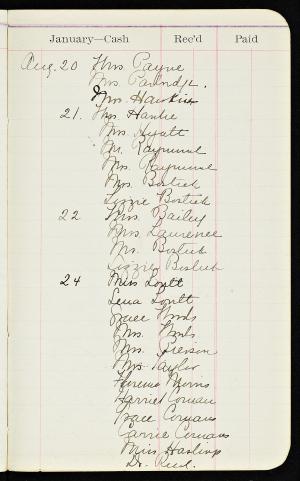 January—Cash Rec'd Paid
Aug. 20 Mrs Payne
Mrs.
Mrs Hawkins
21. Mrs. Hawkie
Mrs. Hyatt
Mr. Raymund
Mrs. Raymund
Mrs. Bostick
Lizzie Bostick
22 Mrs. Bailey
Mrs Laurence
Mrs. Bostick
Lizzie Bostick
24 Miss Lovtt
Lena Lovtt
Grace Woods
Mrs. Woods
Mrs.
Mrs Taylor
Florence Morris
Harriet Comans
Grace Comans
Carrie Comans
Miss Hastings
Dr. Reed.